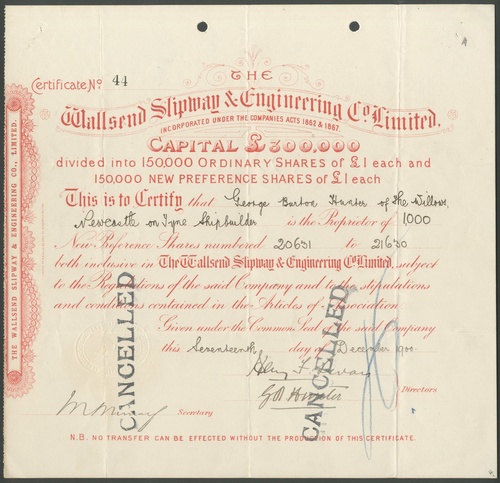 Certificate No. 44
THE
Wallsend Slipway & Engineering Co. Limited.
INCORPORATED UNDER THE COMPANIES ACTS 1862 & 1867.
CAPITAL £300,000
divided into 150,000 ORDINARY SHARES of £1 each and
150,000 NEW PREFERENCE SHARES of £1 each
This is to Certify that George Burton Hunter of The Willows
Newcastle on Tyne Shipbuilder is the Proprietor of 1000
New Preference Shares numbered 20631 to 21630
both inclusive in The Wallsend Slipway & Engineering Co. Limited, subject
to the Regulations of the said Company and to the stipulations
and conditions contained in the Articles of Association
Given under the Common Seal of the said Company
this Seventeenth day of December 1900.
Henry F.
G B Hunter
Directors.
Secretary
N.B. NO TRANSFER CAN BE EFFECTED WITHOUT THE PRODUCTION OF THIS CERTIFICATE.
THE WALLSEND SLIPWAY & ENGINEERING CO., LIMITED.
CANCELLED
CANCELLED